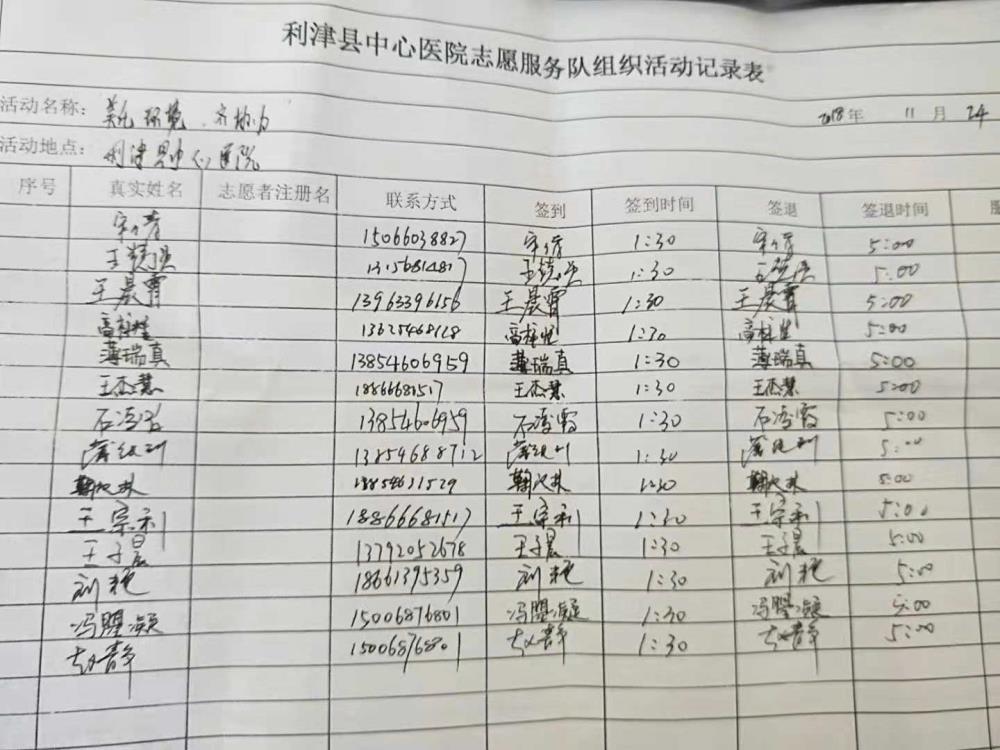 利津县中心医院志愿服务队组织活动记录表
活动名称: 美化环境、齐协力 2018年 11月 24
活动地点: 利津县中心医院
序号 真实姓名 志愿者注册名 联系方式 签到 签到时间 签退 签退时间
15066038827 1:30 5:00
1:30 5:00
王晨霄 13963396156 王晨霄 1:30 王晨霄 5:00
13625468128 1:30 5:00
薄瑞真 13854606959 薄瑞真 1:30 薄瑞真 5:00
王杰慧 18866681517 王杰慧 1:30 王杰慧 5:00
石涛雷 13854606959 石涛雷 1:30 石涛雷 5:00
13854688712 1:30 5:00
18854631529 1:30 5:00
王宗利 18866681517 王宗利 1:30 王宗利 5:00
王子晨 13792052678 王子晨 1:30 王子晨 5:00
刘艳 18661395359 刘艳 1:30 刘艳 5:00
冯盟凝 15006876801 冯盟凝 1:30 冯盟凝 5:00
赵静 15006876801 赵静 1:30 赵静 5:00